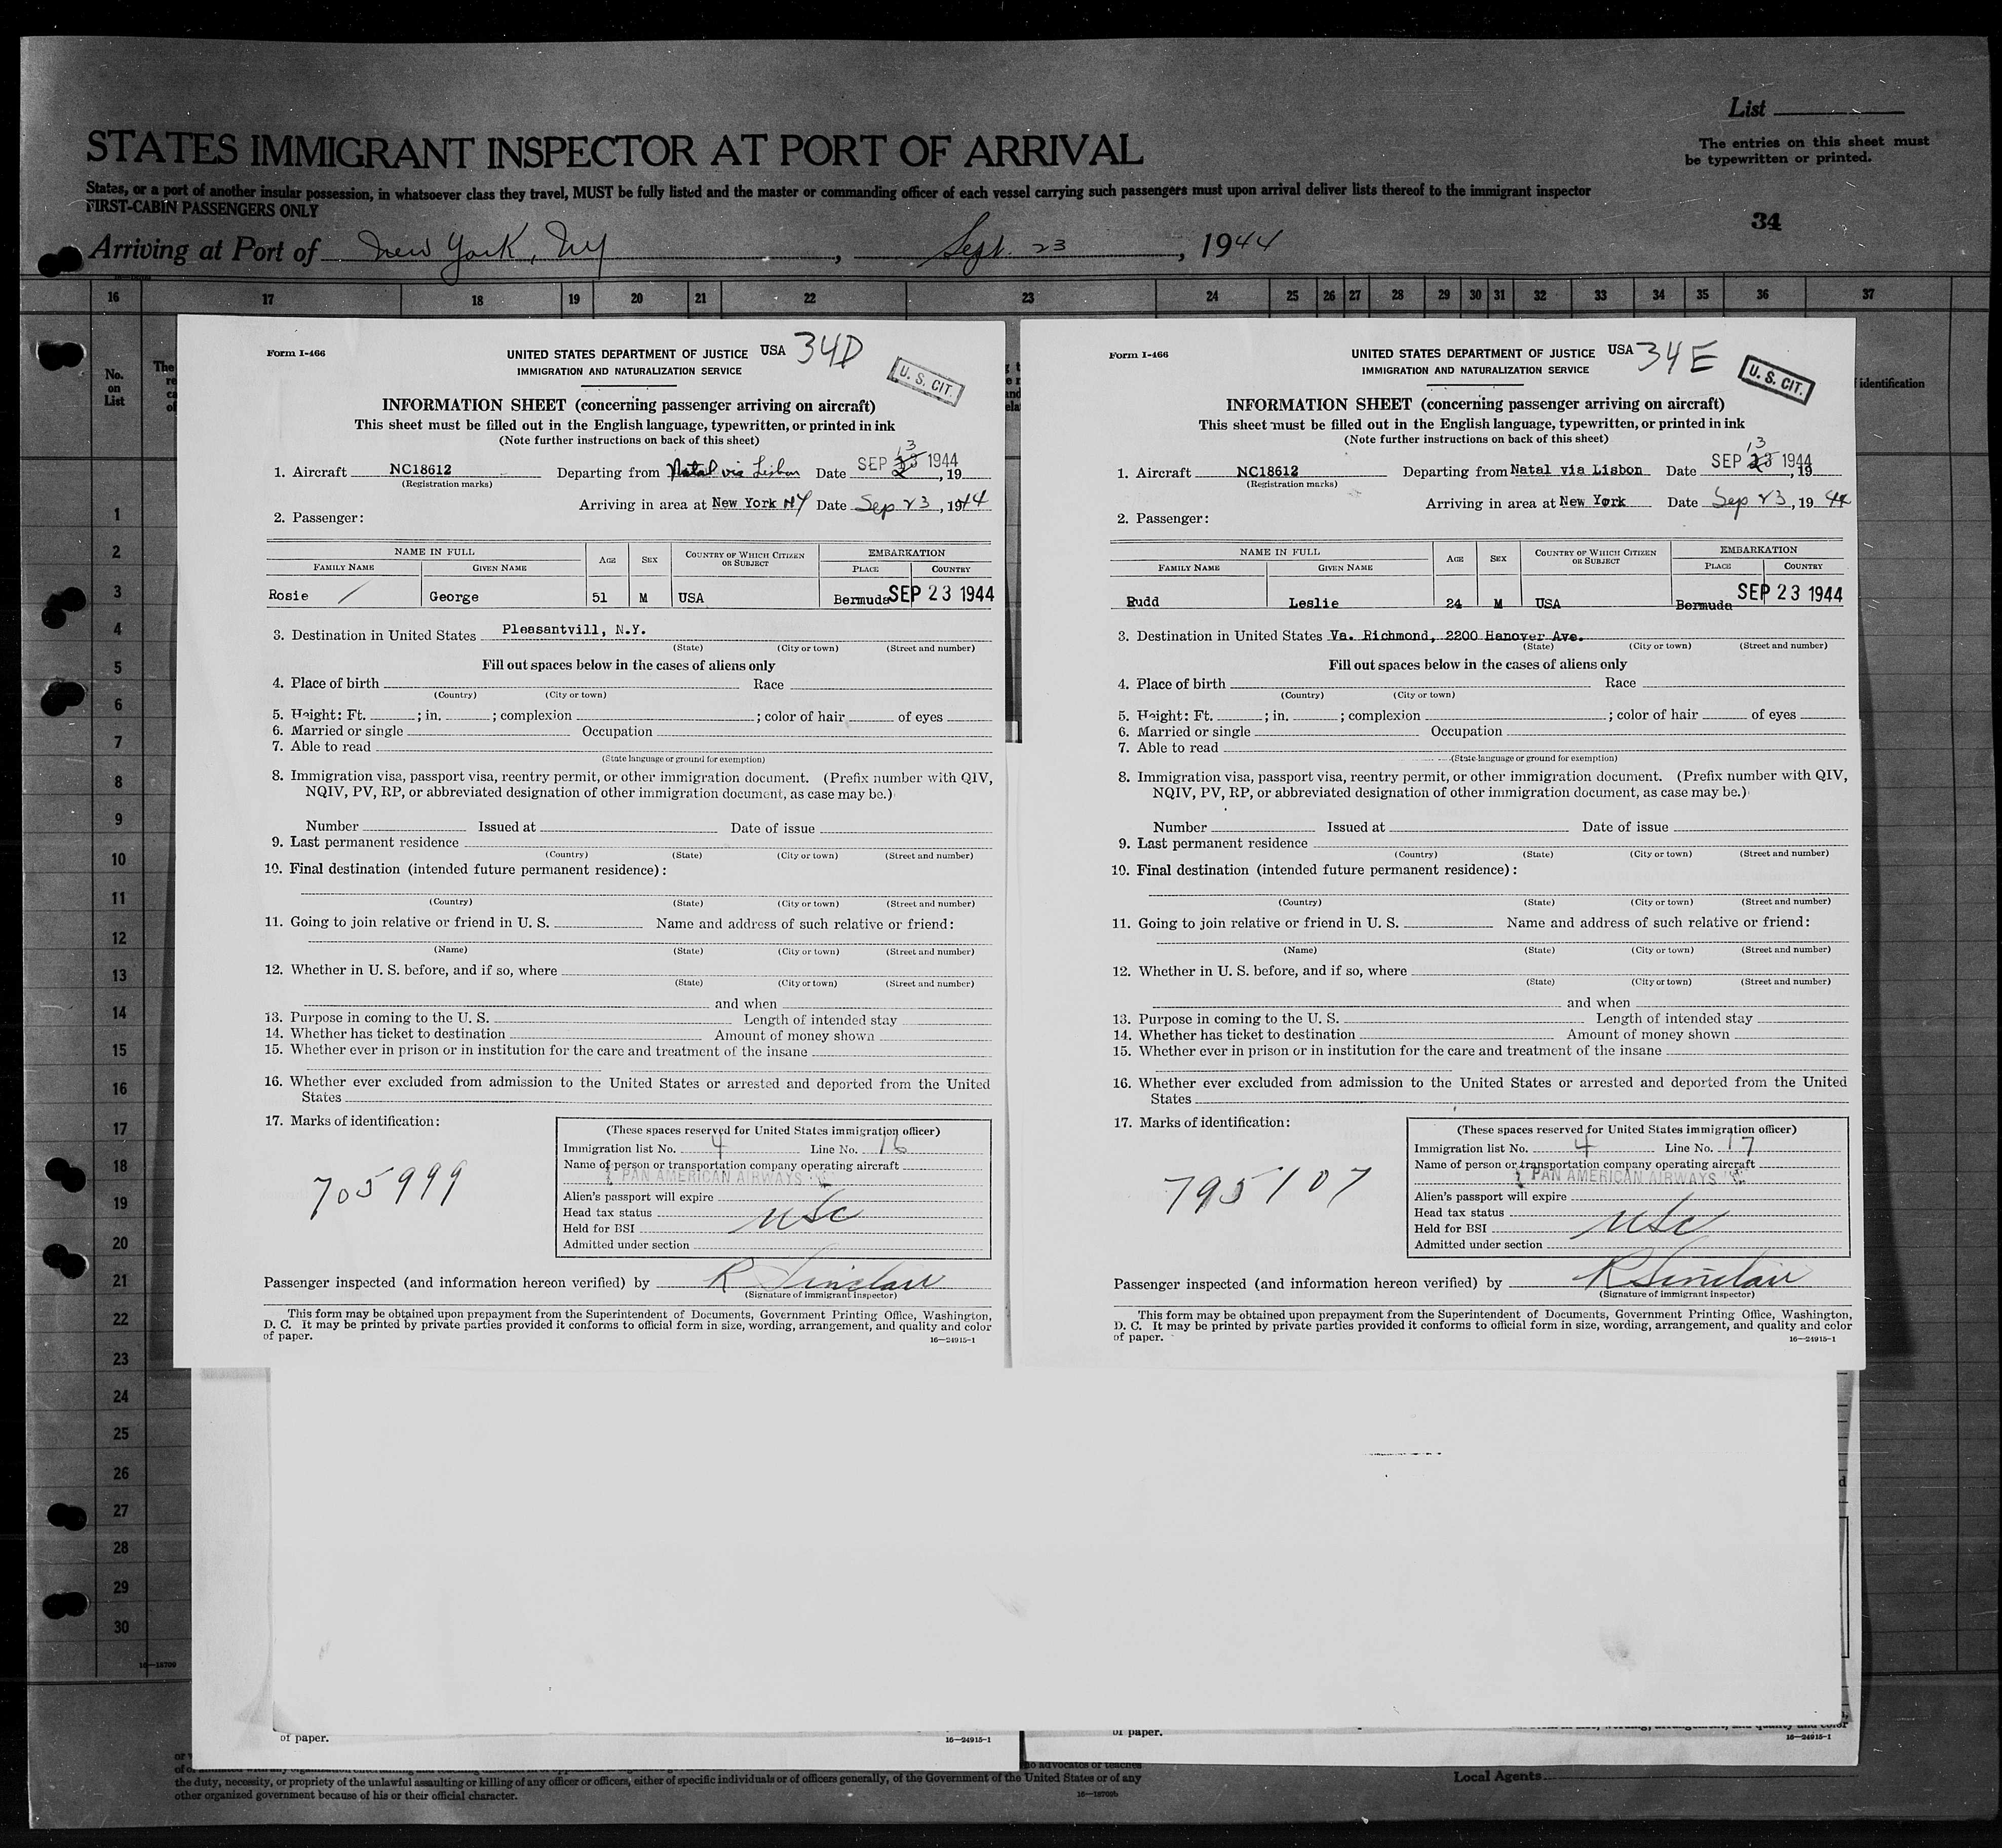 List
STATES IMMIGRANT INSPECTOR AT PORT OF ARRIVAL
The entries on this sheet must
be typewritten or printed.
States, or a port of another insular possession, in whatsoever class they travel, MUST be fully listed and the master or commanding officer of each vessel carrying such passengers must upon arrival deliver lists thereof to the immigrant inspector
FIRST-CABIN PASSENGERS ONLY
34
Arriving at Port of New York, NY, Sept. 23, 1944
16 17 18 19 20 21 22 23 24 25 26 27 28 29 30 31 32 33 34 35 36 37
No. on List
identification
1
2
3
4
5
6
7
8
9
10
11
12
13
14
15
16
17
18
19
20
21
22
23
24
25
26
27
28
29
30
Form I-466
UNITED STATES DEPARTMENT OF JUSTICE USA 34D
IMMIGRATION AND NATURALIZATION SERVICE
U. S. CIT.
INFORMATION SHEET (concerning passenger arriving on aircraft)
This sheet must be filled out in the English language, typewritten, or printed in ink
(Note further instructions on back of this sheet)
1. Aircraft NC18612 Departing from Natal via Lisbon Date SEP 13 1944, 19
(Registration marks)
Arriving in area at New York NY Date Sep 23, 1944
2. Passenger:
NAME IN FULL AGE SEX COUNTRY OF WHICH CITIZEN OR SUBJECT EMBARKATION
FAMILY NAME GIVEN NAME PLACE COUNTRY
Rosie George 51 M USA Bermuda SEP 23 1944
3. Destination in United States Pleasantvill, N.Y.
(State) (City or town) (Street and number)
Fill out spaces below in the cases of aliens only
4. Place of birth Race
(Country) (City or town)
5. Height: Ft. ; in. ; complexion ; color of hair of eyes
6. Married or single Occupation
7. Able to read
(State language or ground for exemption)
8. Immigration visa, passport visa, reentry permit, or other immigration document. (Prefix number with QIV,
NQIV, PV, RP, or abbreviated designation of other immigration document, as case may be.)
Number Issued at Date of issue
9. Last permanent residence
(Country) (State) (City or town) (Street and number)
10. Final destination (intended future permanent residence):
(Country) (State) (City or town) (Street and number)
11. Going to join relative or friend in U. S. Name and address of such relative or friend:
(Name) (State) (City or town) (Street and number)
12. Whether in U. S. before, and if so, where
(State) (City or town) (Street and number)
and when
13. Purpose in coming to the U. S. Length of intended stay
14. Whether has ticket to destination Amount of money shown
15. Whether ever in prison or in institution for the care and treatment of the insane
16. Whether ever excluded from admission to the United States or arrested and deported from the United
States
17. Marks of identification:
705999
(These spaces reserved for United States immigration officer)
Immigration list No. 4 Line No. 16
Name of person or transportation company operating aircraft
PAN AMERICAN AIRWAYS
Alien's passport will expire
Head tax status USC
Held for BSI
Admitted under section
Passenger inspected (and information hereon verified) by R Sinclair
(Signature of immigrant inspector)
This form may be obtained upon prepayment from the Superintendent of Documents, Government Printing Office, Washington,
D. C. It may be printed by private parties provided it conforms to official form in size, wording, arrangement, and quality and color
of paper.
16—24915-1
Form I-466
UNITED STATES DEPARTMENT OF JUSTICE USA 34E
IMMIGRATION AND NATURALIZATION SERVICE
U. S. CIT.
INFORMATION SHEET (concerning passenger arriving on aircraft)
This sheet must be filled out in the English language, typewritten, or printed in ink
(Note further instructions on back of this sheet)
1. Aircraft NC18612 Departing from Natal via Lisbon Date SEP 13 1944, 19
(Registration marks)
Arriving in area at New York Date Sep 23, 1944
2. Passenger:
NAME IN FULL AGE SEX COUNTRY OF WHICH CITIZEN OR SUBJECT EMBARKATION
FAMILY NAME GIVEN NAME PLACE COUNTRY
Rudd Leslie 24 M USA Bermuda SEP 23 1944
3. Destination in United States Va. Richmond, 2200 Hanover Ave.
(State) (City or town) (Street and number)
Fill out spaces below in the cases of aliens only
4. Place of birth Race
(Country) (City or town)
5. Height: Ft. ; in. ; complexion ; color of hair of eyes
6. Married or single Occupation
7. Able to read
(State language or ground for exemption)
8. Immigration visa, passport visa, reentry permit, or other immigration document. (Prefix number with QIV,
NQIV, PV, RP, or abbreviated designation of other immigration document, as case may be.)
Number Issued at Date of issue
9. Last permanent residence
(Country) (State) (City or town) (Street and number)
10. Final destination (intended future permanent residence):
(Country) (State) (City or town) (Street and number)
11. Going to join relative or friend in U. S. Name and address of such relative or friend:
(Name) (State) (City or town) (Street and number)
12. Whether in U. S. before, and if so, where
(State) (City or town) (Street and number)
and when
13. Purpose in coming to the U. S. Length of intended stay
14. Whether has ticket to destination Amount of money shown
15. Whether ever in prison or in institution for the care and treatment of the insane
16. Whether ever excluded from admission to the United States or arrested and deported from the United
States
17. Marks of identification:
795107
(These spaces reserved for United States immigration officer)
Immigration list No. 4 Line No. 17
Name of person or transportation company operating aircraft
PAN AMERICAN AIRWAYS
Alien's passport will expire
Head tax status USC
Held for BSI
Admitted under section
Passenger inspected (and information hereon verified) by R Sinclair
(Signature of immigrant inspector)
This form may be obtained upon prepayment from the Superintendent of Documents, Government Printing Office, Washington,
D. C. It may be printed by private parties provided it conforms to official form in size, wording, arrangement, and quality and color
of paper.
16—24915-1
of paper.
16—24915-1
of paper.
16—24915-1
the duty, necessity, or propriety of the unlawful assaulting or killing of any officer or officers, either of specific individuals or of officers generally, of the Government of the United States or of any
other organized government because of his or their official character.
Local Agents